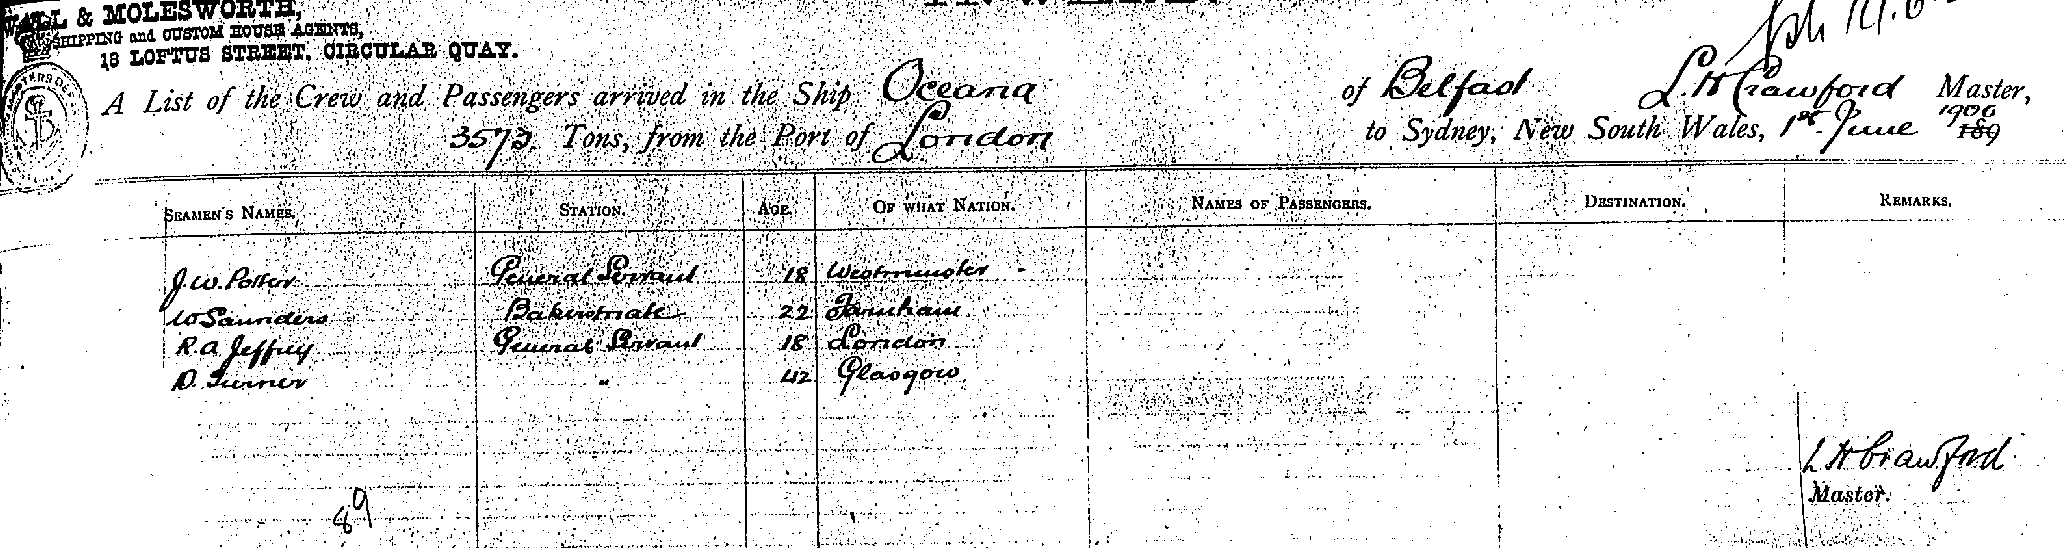 & MOLESWORTH,
SHIPPING and CUSTOM HOUSE AGENTS,
18 LOFTUS STREET, CIRCULAR QUAY.
A List of the Crew and Passengers arrived in the Ship Oceana of Belfast L. H Crawford Master,
3573 Tons, from the Port of London to Sydney, New South Wales, 1st June 1906 189
SEAMEN'S NAMES. STATION. AGE. OF WHAT NATION. NAMES OF PASSENGERS. DESTINATION. REMARKS.
J. W. Potter General Servant 18 Westminster
W Saunders Bakersmate 22 Farnham
R. A. Jeffrey General Servant 18 London
D. Turner " 42 Glasgow
L H Crawford
Master.
89